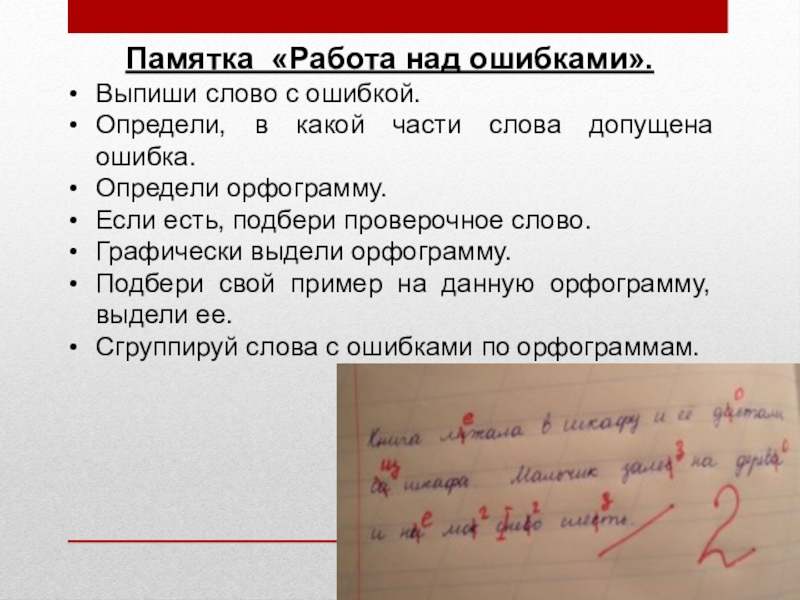 Памятка «Работа над ошибками».
• Выпиши слово с ошибкой.
• Определи, в какой части слова допущена
ошибка.
• Определи орфограмму.
• Если есть, подбери проверочное слово.
• Графически выдели орфограмму.
• Подбери свой пример на данную орфограмму,
выдели ее.
• Сгруппируй слова с ошибками по орфограммам.
е о
Книга лижала в шкафу и её дастали
из з о
са шкафа. Мальчик залес на дерева
е г I г з
и на мок снево
2